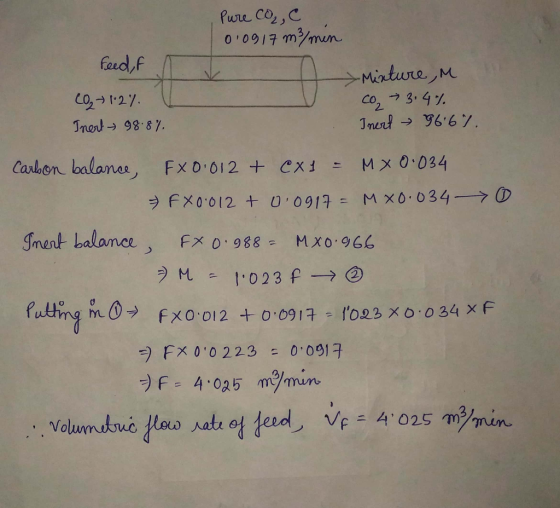 Pure CO₂, C
0.0917 m³/min
Feed, F
Mixture, M
CO₂ → 1.2%.
CO₂ → 3.4%.
Inert → 98.8%.
Inert → 96.6%.
Carbon balance, F×0.012 + C×1 = M×0.034
⇒ F×0.012 + 0.0917 = M×0.034 → ①
Inert balance, F×0.988 = M×0.966
⇒ M = 1.023 F → ②
Putting in ① → F×0.012 + 0.0917 = 1.023×0.034×F
⇒ F×0.0223 = 0.0917
⇒ F = 4.025 m³/min
∴ Volumetric flow rate of feed, V̇F = 4.025 m³/min